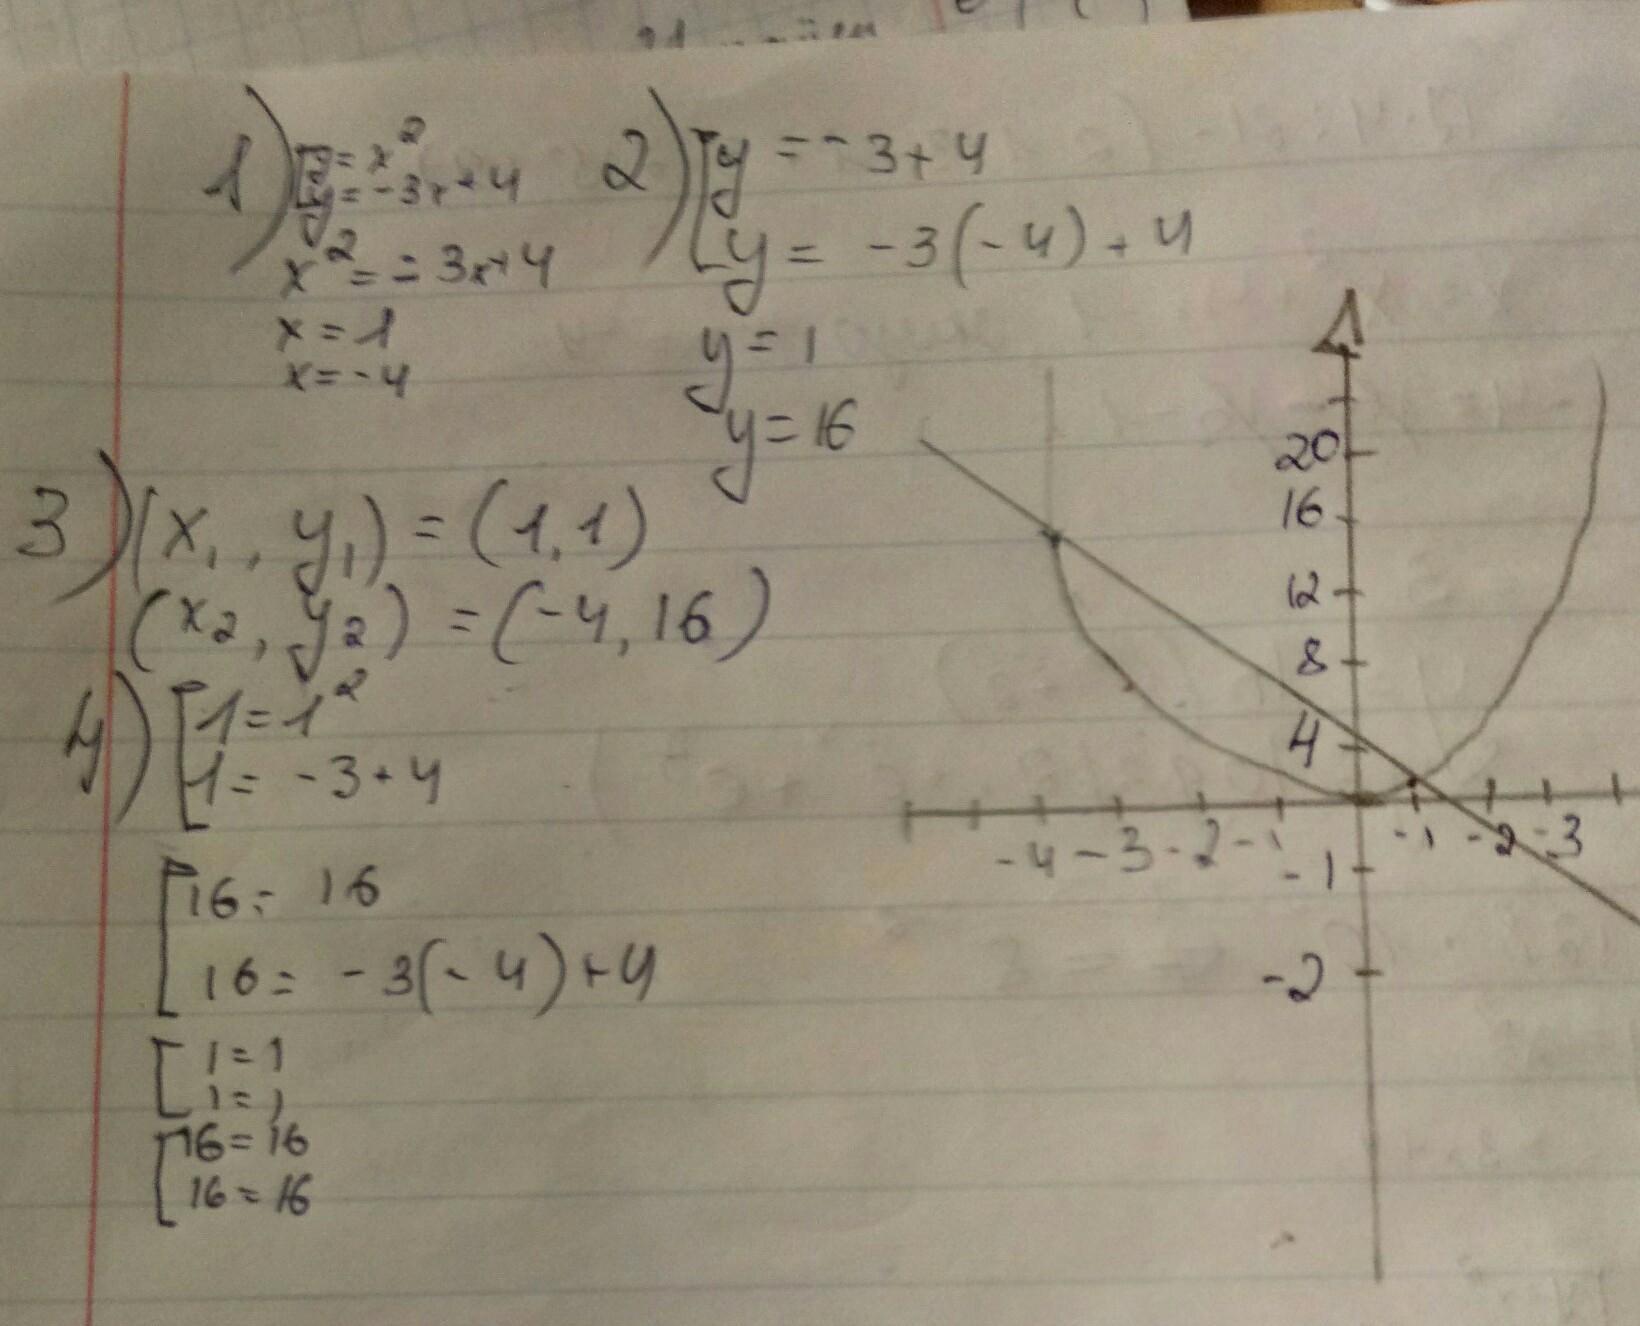 1) [y = x²
y = -3x + 4
x² = = 3x + 4
x = 1
x = -4
2) [y = - 3 + 4
y = -3(-4) + 4
y = 1
y = 16
3) (x₁, y₁) = (1, 1)
(x₂, y₂) = (-4, 16)
4) [1 = 1²
1 = -3 + 4
[16 = 16
16 = -3(-4) + 4
[1 = 1
1 = 1
[16 = 16
16 = 16
20
16
12
8
4
-4 -3 -2 -1 -1 -2 -3
-1
-2